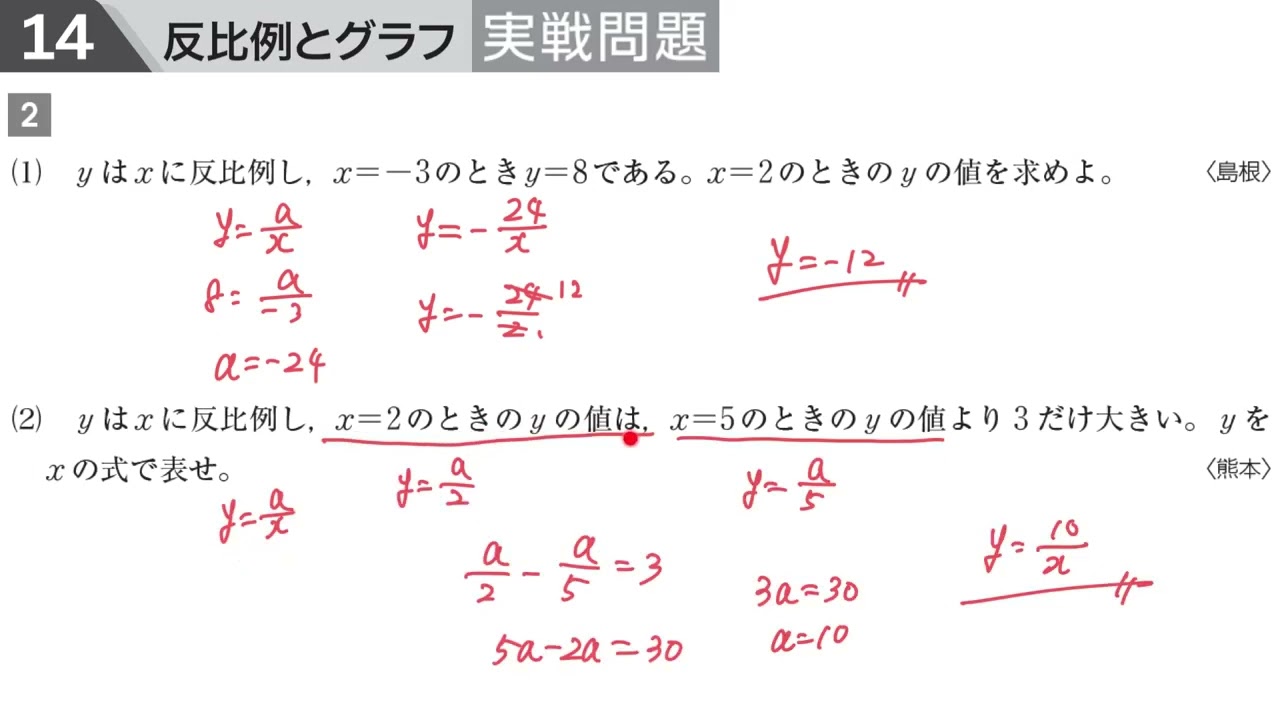 14 反比例とグラフ 実戦問題
2
(1) yはxに反比例し，x=−3のときy=8である。x=2のときのyの値を求めよ。 〈島根〉
y=a/x y=-24/x
y=-12
8=a/-3 y=-24/2 12 1
a=-24
(2) yはxに反比例し，x=2のときのyの値は，x=5のときのyの値より3だけ大きい。yを
xの式で表せ。 〈熊本〉
y=a/x y=a/2 y=a/5
a/2-a/5=3 3a=30 y=10/x
5a-2a=30 a=10